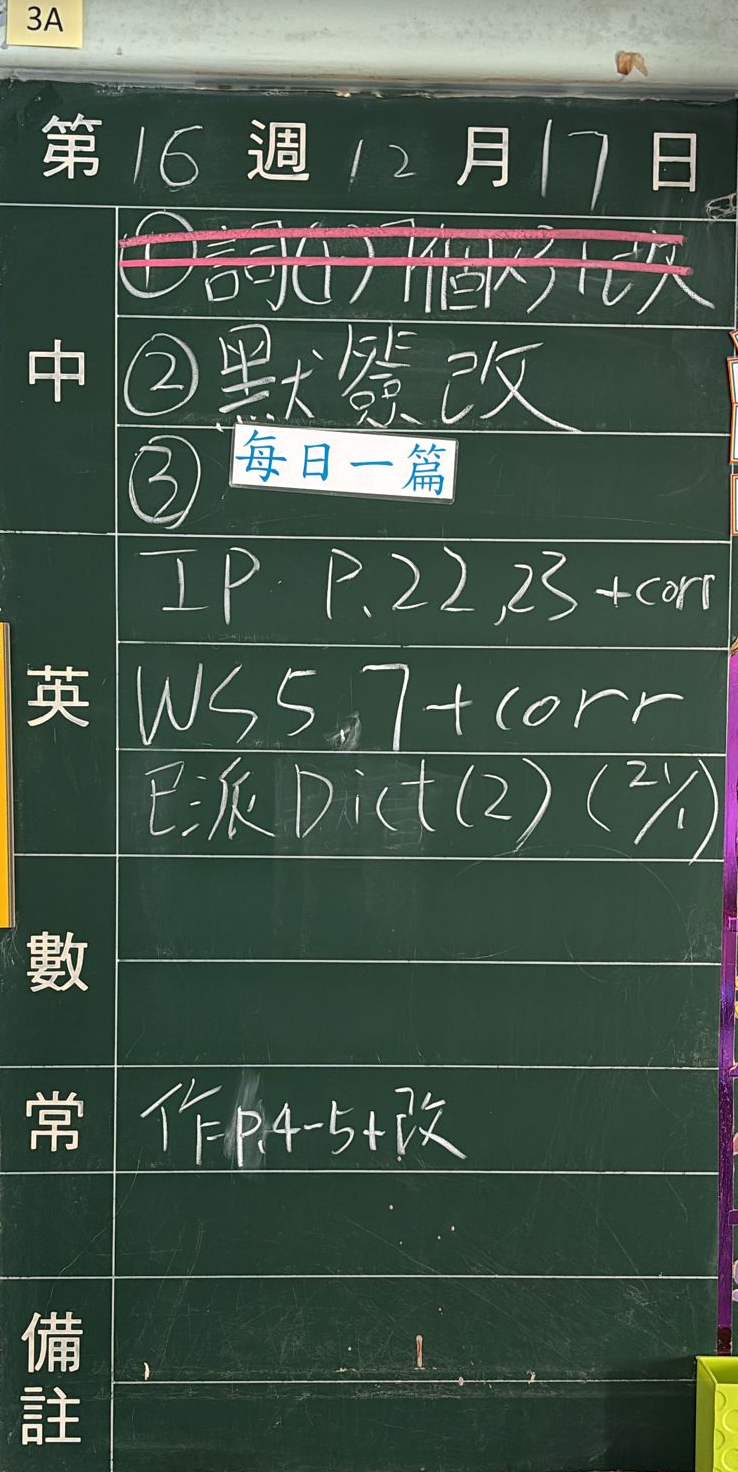 3A
第 16 週 12 月 17 日
中
① 詞(十)
② 默簽改
③ 每日一篇
英
IP P.22,23 +corr
WS 5,7 + corr
已派 Dict (2) (21/1)
數
常
作 P.4-5+改
備註